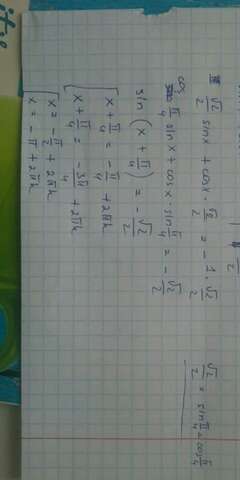 √2/2 sinx + cosx · √2/2 = -1 · √2/2
cos π/4 sinx + cosx · sin π/4 = - √2/2
sin (x + π/4) = - √2/2
x + π/4 = - π/4 + 2πk
x + π/4 = - 3π/4 + 2πk
x = - π/2 + 2πk
x = - π + 2πk
√2/2 = sin π/4 = cos π/4